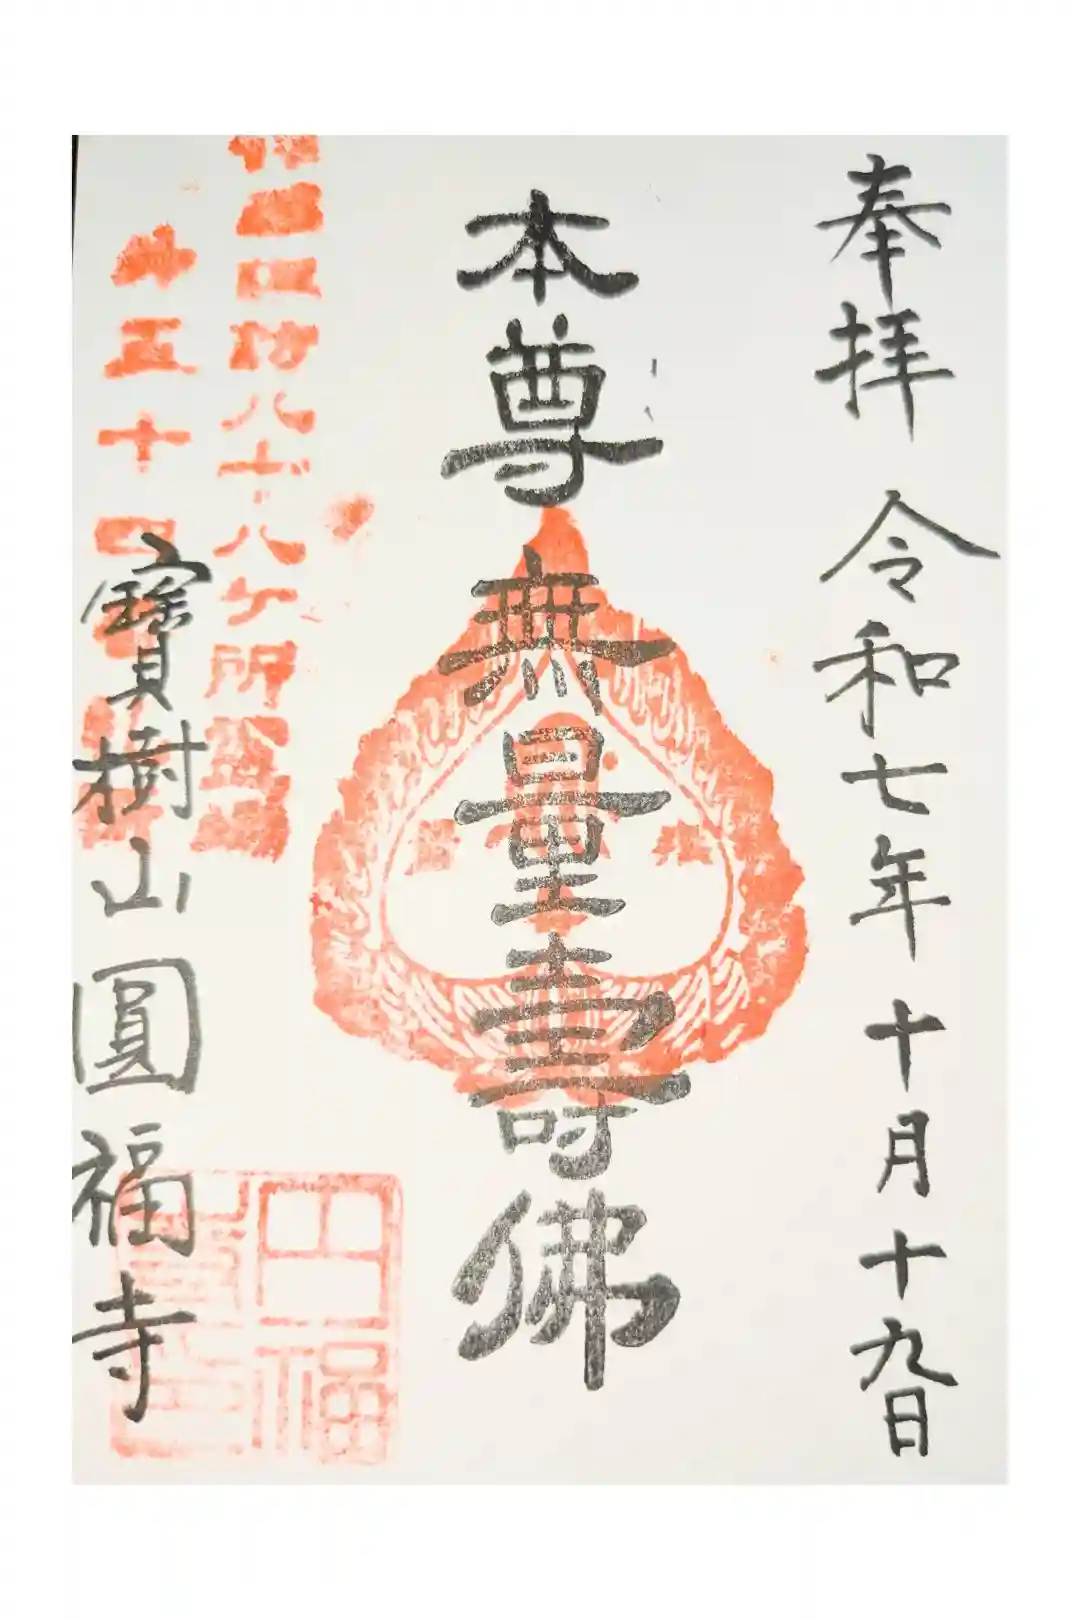 奉拝 令和七年 十月十九日
本尊 無量壽佛
四防八十八ヶ所
五十四
寶樹山圓福寺